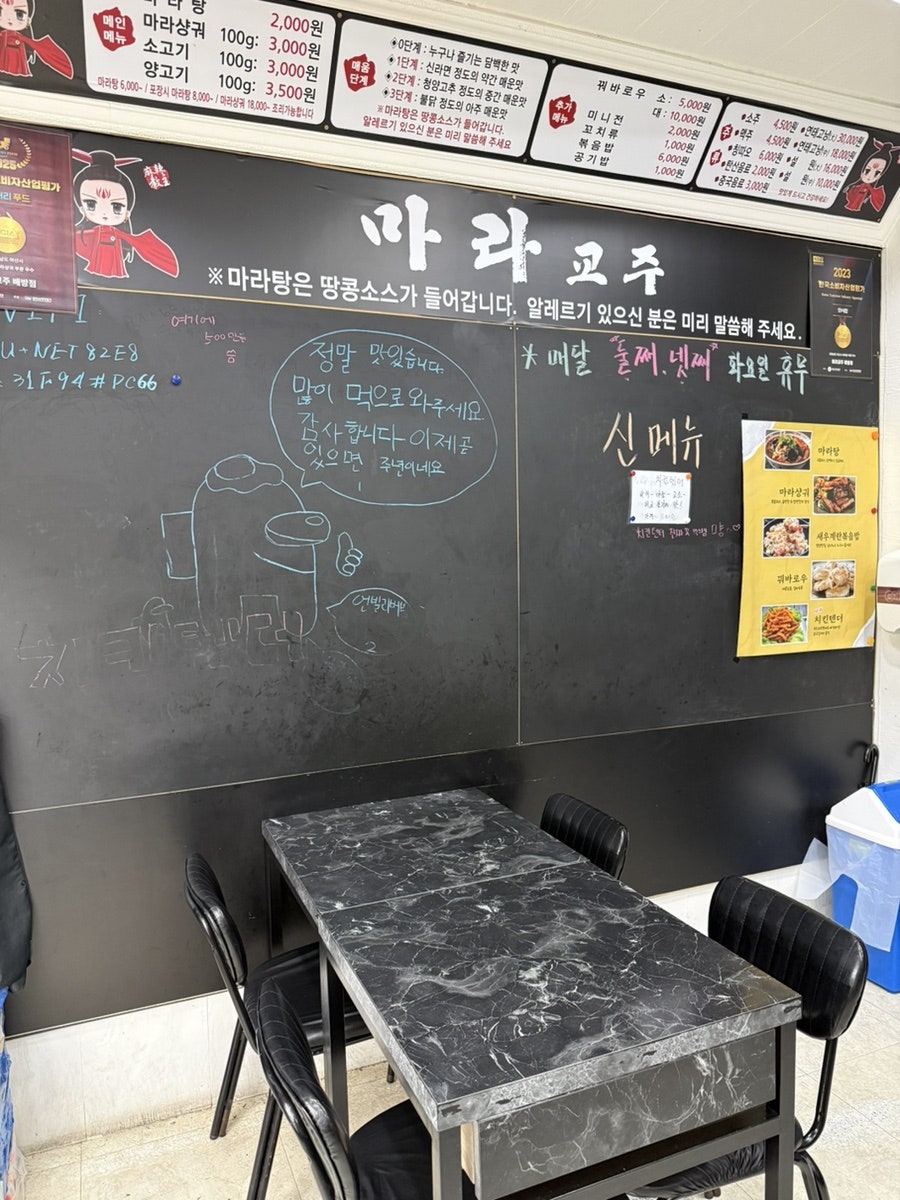 마라탕 2,000원
마라샹궈 100g: 3,000원
소고기 100g: 3,000원
양고기 100g: 3,500원
마라탕 6,000~ / 포장시 마라탕 8,000~ / 마라샹궈 18,000~ 조리가능합니다
메인
메뉴
매움
단계
◆0단계 : 누구나 즐기는 담백한 맛
◆1단계 : 신라면 정도의 약간 매운맛
◆2단계 : 청양고추 정도의 중간 매운맛
◆3단계 : 불닭 정도의 아주 매운맛
※마라탕은 땅콩소스가 들어갑니다.
알레르기 있으신 분은 미리 말씀해 주세요
추가
메뉴
꿔바로우 소 : 5,000원
대 : 10,000원
미니전 2,000원
꼬치류 1,000원
볶음밥 6,000원
공기밥 1,000원
주
류
●소주 4,500원
●맥주 4,500원
●칭따오 6,000원
●탄산음료 2,000원
●중국음료 3,000원
●연태고냥(대) 30,000원
●연태고냥(中) 18,000원
맛있게 드시고 건강하세요!
마라교주
※마라탕은 땅콩소스가 들어갑니다. 알레르기 있으신 분은 미리 말씀해 주세요.
U+NET82E8
31F94#DC66
여기에
500만뷰
씀
정말 맛있습니다.
많이 먹으로 와주세요
감사합니다 이제곧
있으면 1주년이네요
언빌리버브
2
* 매달 둘째. 넷째 화요일 휴무
신 메뉴
2023
한국소비자산업평가
마라탕
마라샹궈
새우계란볶음밥
꿔바로우
치킨텐더